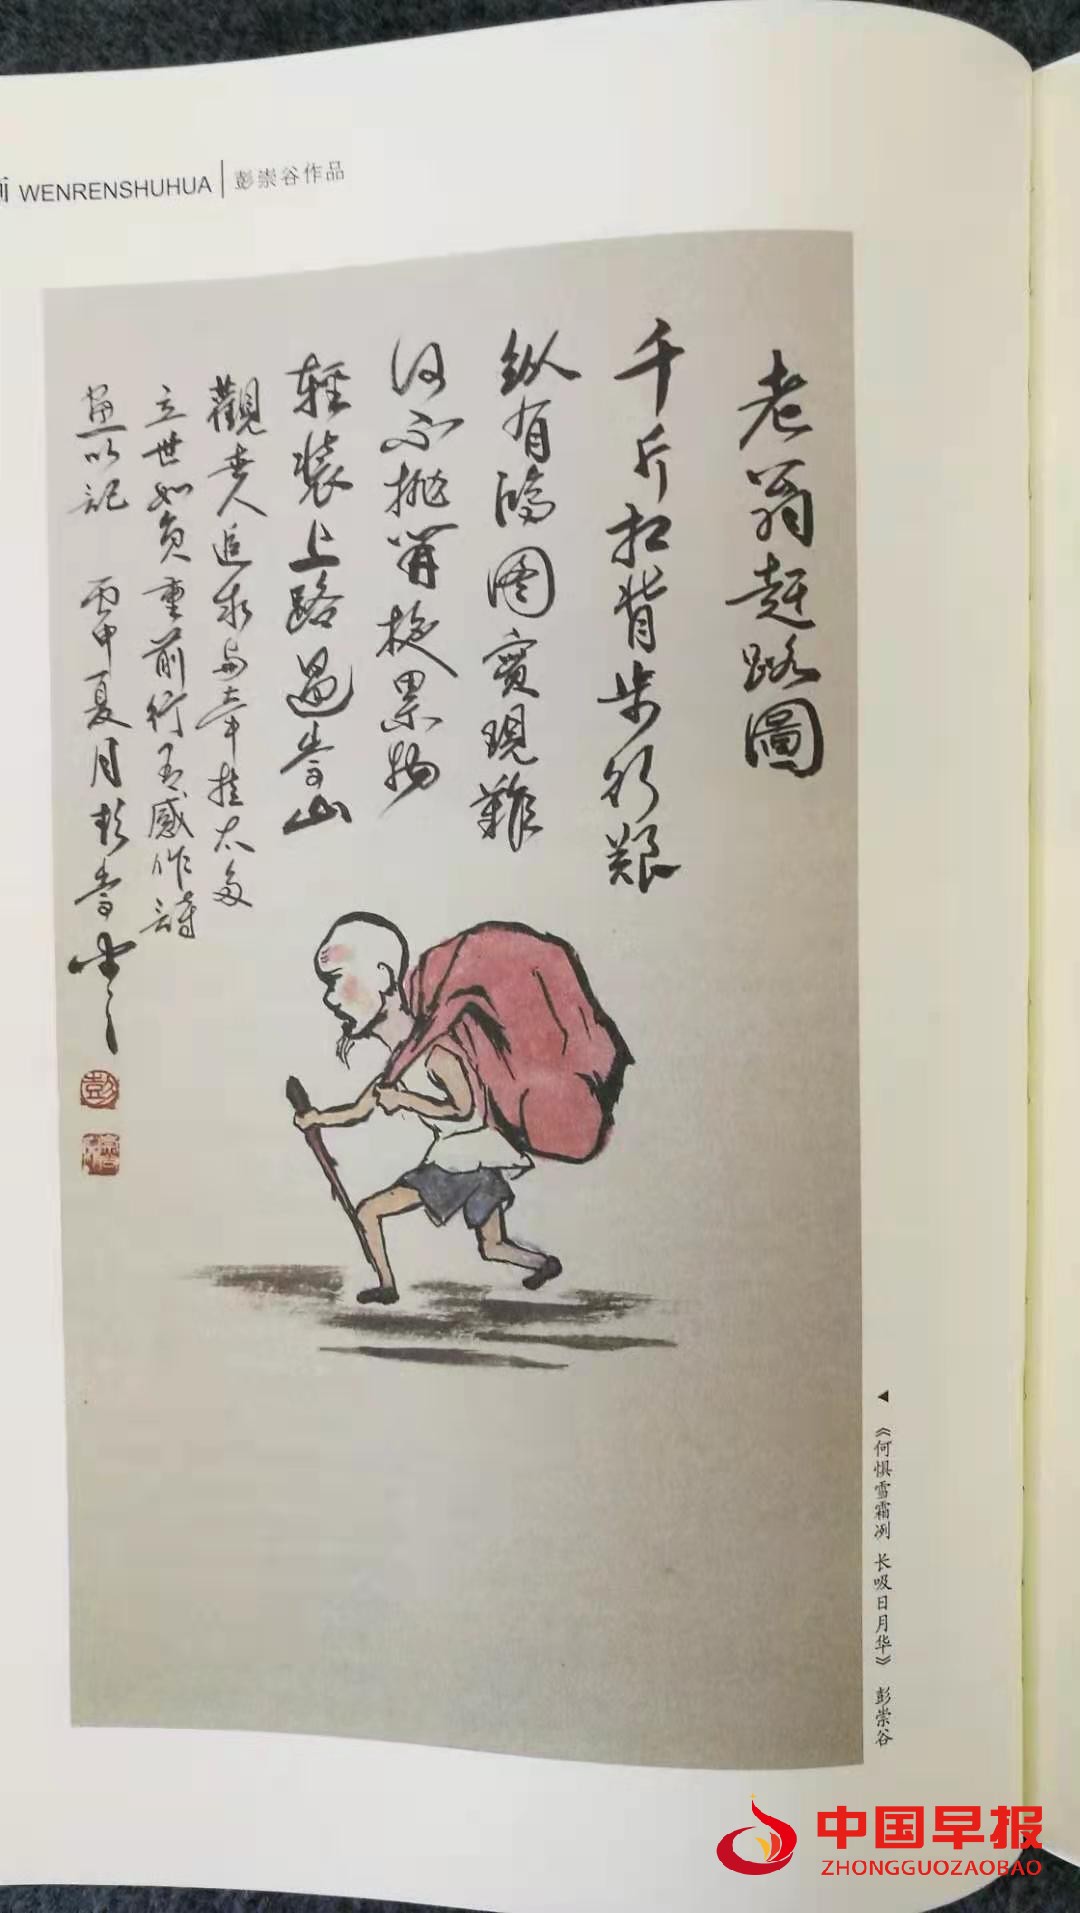 WENRENSHUHUA | 彭崇谷作品
老翁趕路圖
千斤扛背步行艱
纵有鴻图實現難
何不抛開拖累物
輕裝上路過崇山
觀世人追求与牵挂太多
立世如負重前行有感作詩
画以記 丙申夏月彭崇谷
彭
《何惧雪霜冽 长吸日月华》 彭崇谷
中国早报
ZHONGGUOZAOBAO